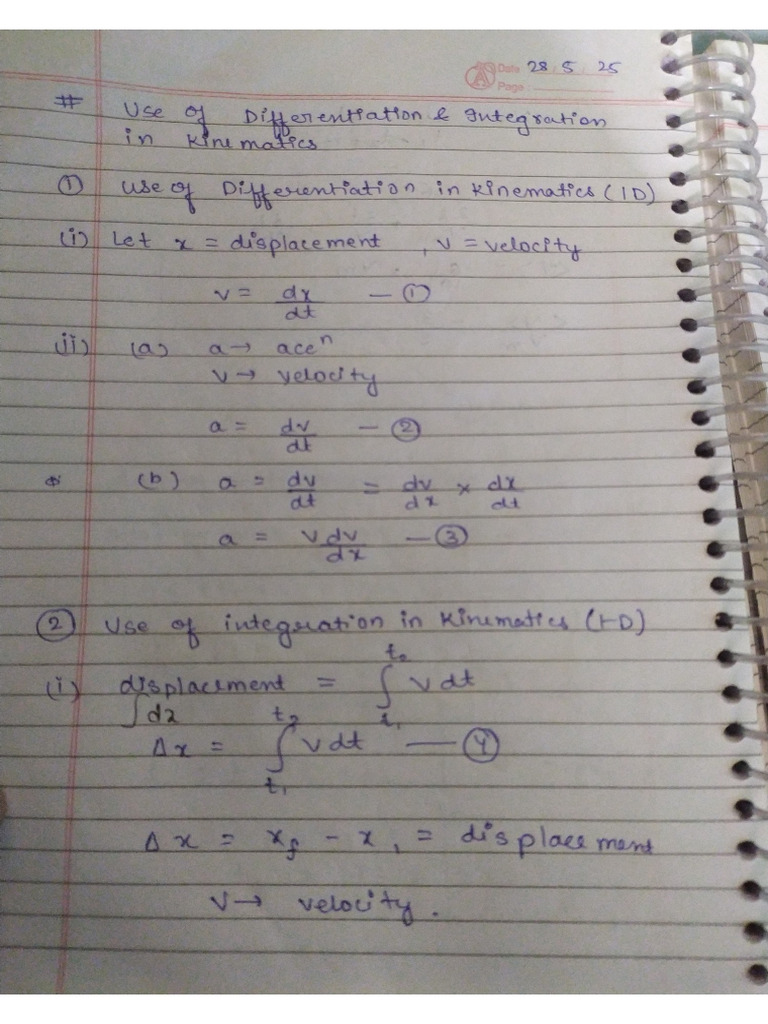 Date 28 5 25
Page
# Use of Differentiation & Integration
in Kinematics
① Use of Differentiation in Kinematics (1D)
(i) Let x = displacement , v = velocity
v = dx/dt — ①
(ii) (a) a → accⁿ
v → velocity
a = dv/dt — ②
(b) a = dv/dt = dv/dx × dx/dt
a = v dv/dx — ③
② Use of integration in Kinematics (1-D)
(i) displacement = ∫_{t₁}^{t₂} v dt
∫dx
Δx = ∫_{t₁}^{t₂} v dt — ④
Δx = x_f - x₁ = displacement
v → velocity.